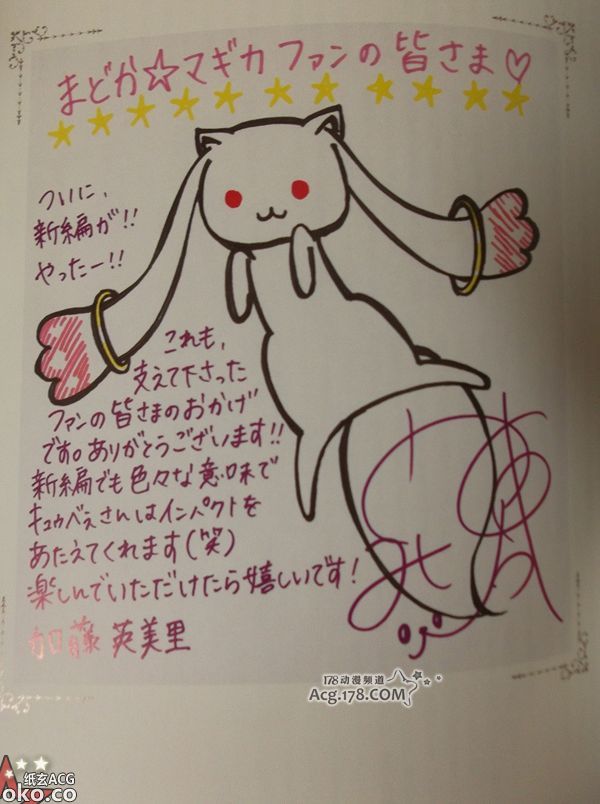 まどか☆マギカ ファンの皆さま♡
ついに、
新編が!!
やったー!!
これも、
支えて下さった
ファンの皆さまのおかげ
です。ありがとうございます!!
新編でも色々な意味で
キュゥべえさんはインパクトを
あたえてくれます(笑)
楽しんでいただけたら嬉しいです!
加藤 英美里
178动漫频道
Acg.178.COM
纸玄ACG
oko.co